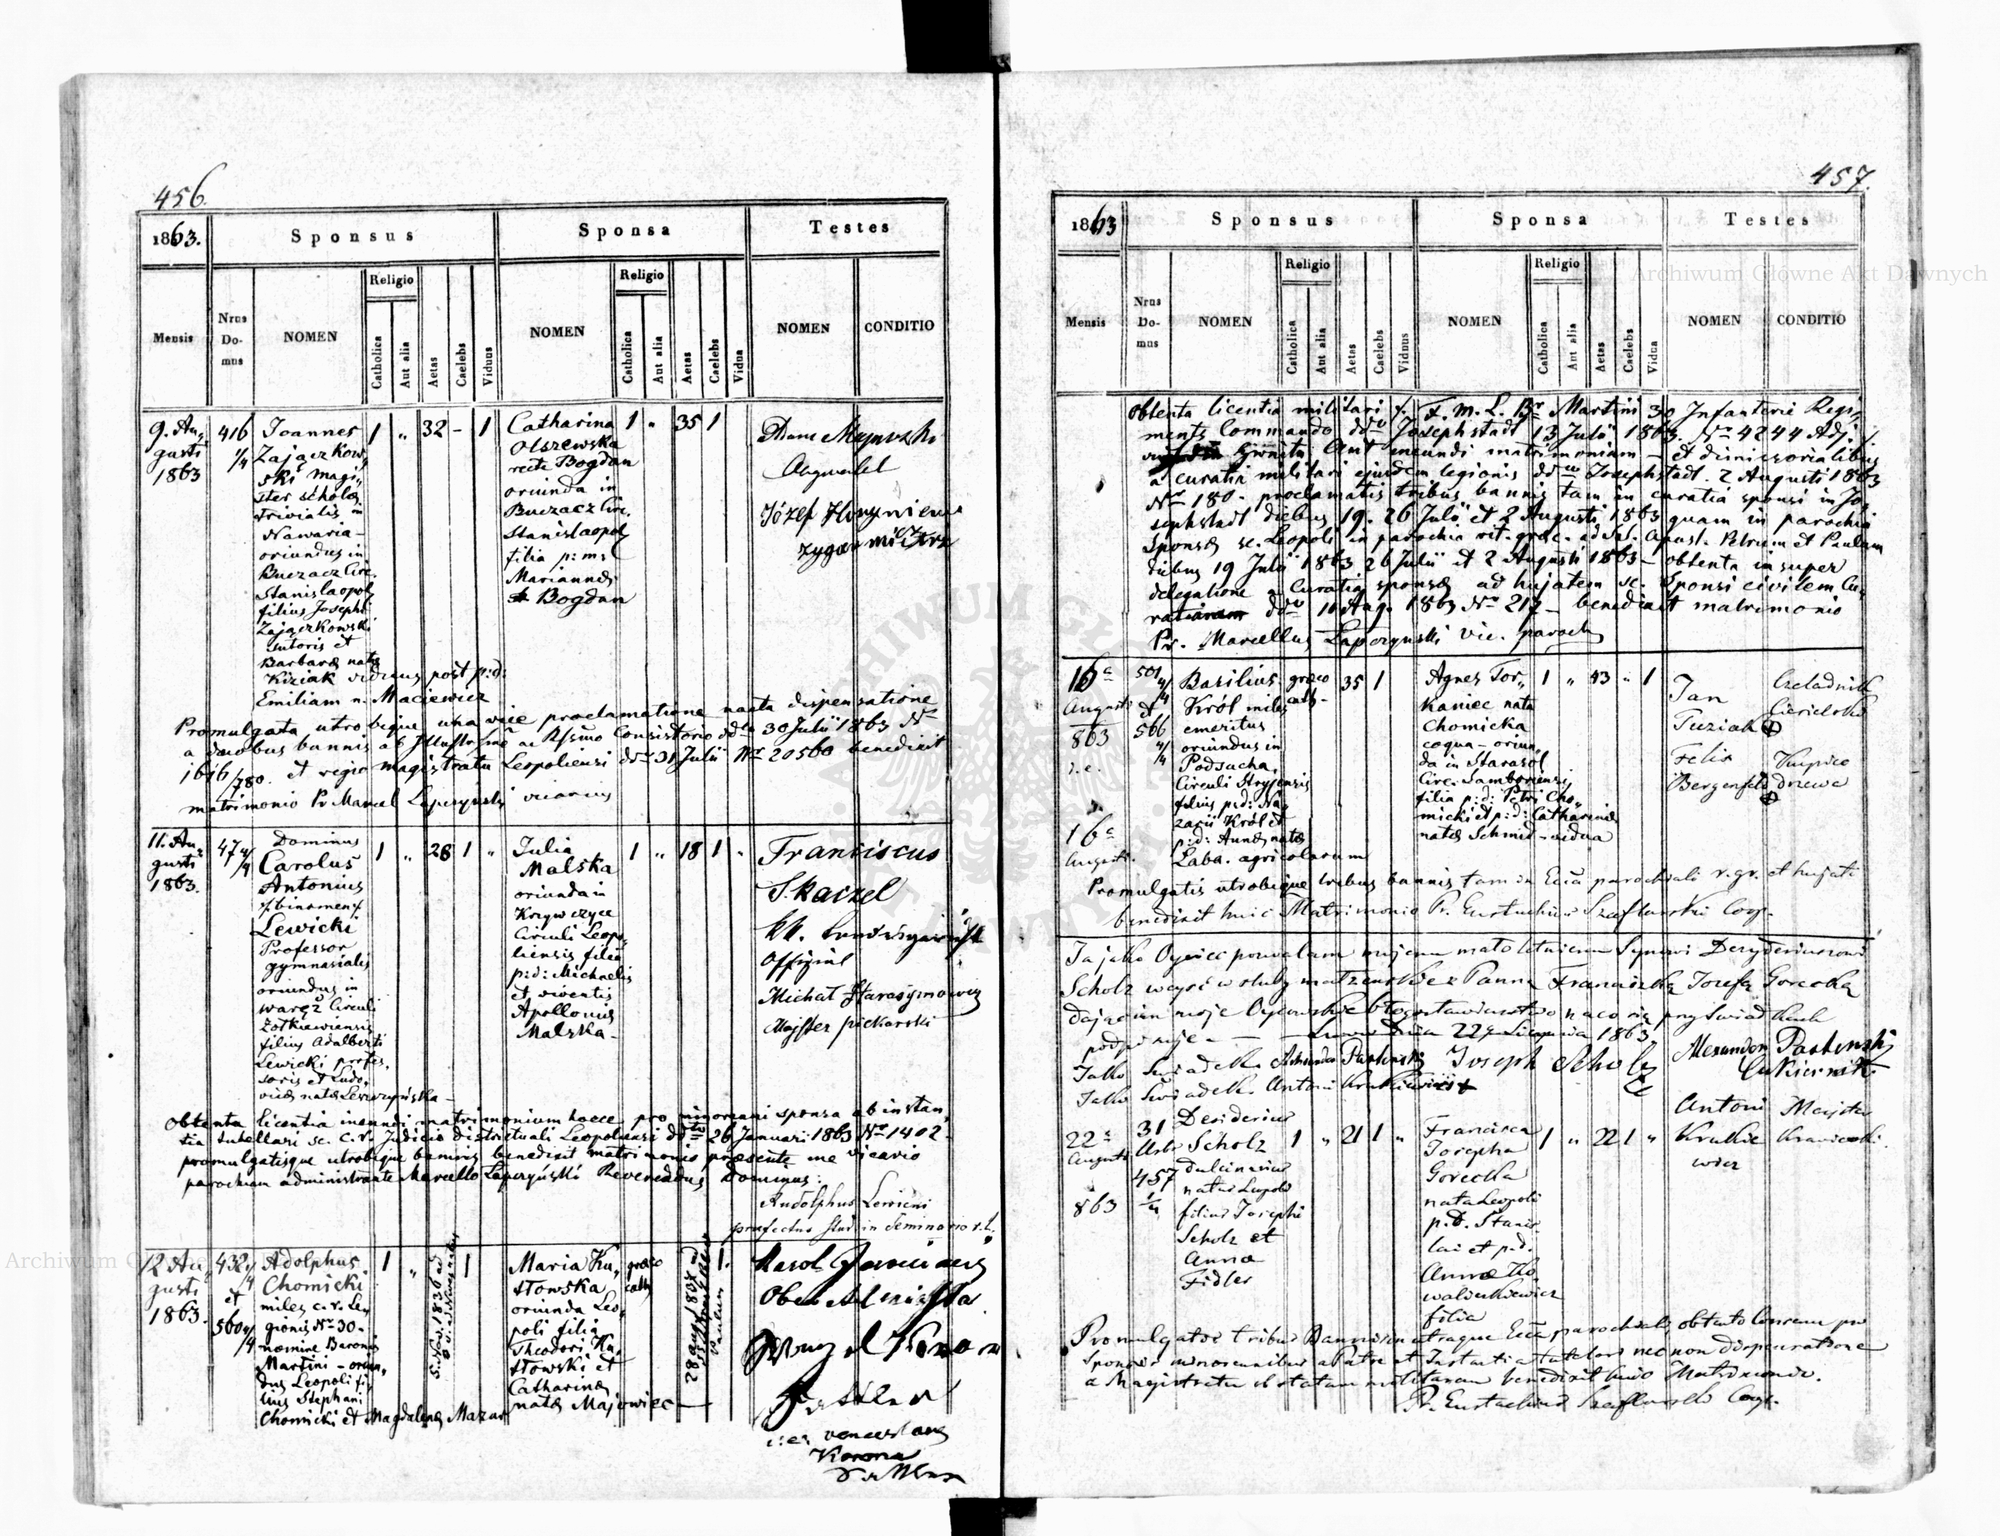 456.
1863.
Sponsus
Sponsa
Testes
Mensis
Nrus Domus
NOMEN
Religio
Catholica
Aut alia
Aetas
Caelebs
Viduus
NOMEN
Religio
Catholica
Aut alia
Aetas
Caelebs
Vidua
NOMEN
CONDITIO
9. Au,
gusti
1863
416
1/4
Joannes
Zajączkow,
ski Magi,
ster scholæ
trivialis in
Nawaria –
oriundus in
Buczacz Circ.
Stanislaopol.
filius Josephi
Zajączkowski
sutoris et
Barbaræ natæ
Kiziak viduus post p: d:
Emiliam n. Maciewicz
1 „ 32 – 1
Catharina
Olszewska
recte Bogdan
oriunda in
Buczacz Circ.
Stanislaopol
filia p: m:
Mariannæ
Bogdan
1 „ 35 1
Józef
Promulgata utrobique una vice proclamatione nacta dispensatione
a duobus bannis ab Illustrsmo ac Rssmo Consistorio ddto 30 Julii 1863 No
1616/780. et regio magistratu Leopoliensi ddto 31 Julii No 20560 benedixit
matrimonio Pr Marcel Łapczyński vicarius
11. Au,
gusti
1863.
47 4/4
Dominus
Carolus
Antonius
binomen
Lewicki
Professor
gymnasialis
oriundus in
Waręż Circuli
Żółkiewiensis
filius Adalberti
Lewicki profes,
soris et Ludo,
vicæ natæ Leszczyńska –
1 „ 28 1 „
Julia
Malska
oriunda in
Krzywczyce
Circuli Leopo,
liensis filia
p: d: Michaelis
et viventis
Apolloniæ
Malska –
1 „ 18 1 „
Franciscus
Skaczel
Offizial
Michał Harasymowicz
Majster piekarski
Obtenta licentia ineundi matrimonium haece pro minorenni sponsa ab instan,
tia tutellari sc. C. r. Judicio districtuali Leopoliensi ddto 26 Januari 1863 No 1402 –
promulgatisque utrobique bannis benedixit matrimonio præsente me vicario
parochiam administrante Marcello Łapczyński Reverendus Dominus:
Rudolphus Lewicki
præfectus stud. in Seminario r. l.
12 Au
gusti
1863.
432 4/4
et
560 4/4
Adolphus
Chomicki
miles c. r. Le,
gionis No 30 –
nomine Baronis
Martini – oriun,
dus Leopoli fi,
lius Stephani
Chomicki et Magdalenæ Mazur
1 „
1
Maria Ku,
stowska
oriunda Leo,
poli filia
Theodori Ku,
stowski et
Catharinæ
natæ Majowiec –
græco
cath
1.
Karol
venceslaus
Korona
457.
1863
Sponsus
Sponsa
Testes
Mensis
Nrus Domus
NOMEN
Religio
Catholica
Aut alia
Aetas
Caelebs
Viduus
NOMEN
Religio
Catholica
Aut alia
Aetas
Caelebs
Vidua
NOMEN
CONDITIO
obtenta licentia militari F. M. L. Br Martini 30 Infanterie Regi,
ments Commando ddto Josephstadt 13 Julii 1863. No 4244 Adj.
ineundi matrimonium – et dimissorialibus
a curatia militari ejusdem legionis ddto Josephstadt. 2 Augusti 1863
No 180. proclamatis tribus bannis tam in curatia sponsi in Jo,
sephstadt diebus 19. 26 Julii et 2 Augusti 1863 quam in parochia
Sponsæ sc. Leopoli in parochia rit. græc. ad SS. Apost. Petrum et Paulum
diebus 19 Julii 1863 26 Julii et 2 Augusti 1863 – obtenta insuper
delegatione a Curatia sponsæ ad hujatem sc. Sponsi civilem Cu,
ratiam ddto 11 Aug. 1863 No 217 – benedixit matrimonio
Pr. Marcellus Łapczyński vic. paroch
16a
Augusti
863
r. e.
16a
Augusti.
501 4/4
et
566 4/4
Basilius
Król miles
emeritus
oriundus in
Podsucha
Circuli Stryensis
filius p: d: Na,
zarii Król et
p: d: Annæ natæ
Łaba. agricolarum
græco
cath.
35 1
Agnes Tor,
kaniec nata
Chomicka
coqua – oriun,
da in Starasol
Circ. Samboriensi
filia p: d: Petri Cho,
micki et p: d: Catharinæ
natæ Schmid – vidua
1 „ 43 „ 1
Jan
Tuziak
Czeladnik
Ciesielski
Felix
Bergenfeld
Kupiec
drzewa
Promulgatis utrobique tribus bannis tam in Ecca parochiali r. gr. et hujati
benedixit huic Matrimonio Pr. Eustachius Szaflarski Coop.
Ja jako Oyciec pozwalam mojemu małoletniemu Synowi Dezyderiuszowi
Scholz wejść w śluby małżeńskie z Panną Franciszką Józefą Gorecką
dając im moje Oycowskie błogosławieństwo na co się przy świadkach
podpisuje – Lwów Dnia 22go Sierpnia 1863
Jako Świadek Alexander Pasławski Joseph Scholz
Jako Świadek Antoni Krukiewicz
22a
Augusti
863
31
457
1/4
Desiderius
Scholz
dulciarius
natus Leopoli
filius Josephi
Scholz et
Annæ
Fidler
1 „ 21 1 „
Francisca
Josepha
Gorecka
nata Leopoli
p. d. Stanis
lai et p. d.
Annæ Ko,
walerkiewicz
filia
1 „ 22 1 „
Alexander
Cukiernik
Antoni
Krukie
wicz
Majster
Krawiecki
Promulgatis tribus Bannis in utraque Ecca parochiali, obtento Consensu pro
Sponsis minorennibus a Patre et Instantia tutelari nec non dispensatione
a Magistratu ob statum militarem benedixit huic Matrimonio.
Pr. Eustachius Szaflarski Coop.
Archiwum Główne Akt Dawnych